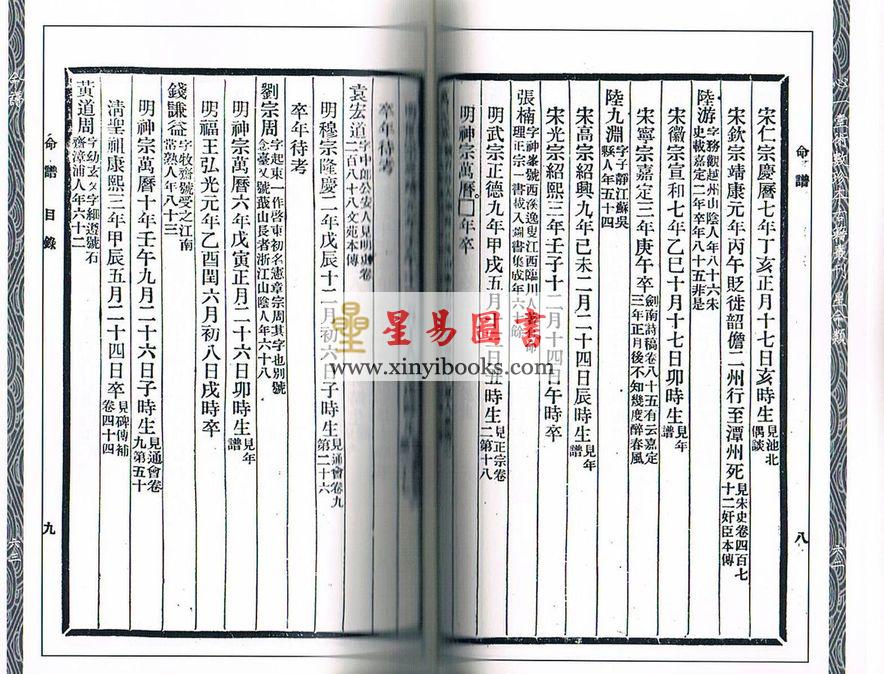 命譜
八
宋仁宗慶曆七年丁亥正月十七日亥時生見池北偶談
宋欽宗靖康元年丙午貶徙韶儋二州行至潭州死見宋史卷四百七十二奸臣本傳
陸游字務觀越州山陰人年八十六宋史載嘉定二年卒年八十五非是
宋徽宗宣和七年乙巳十月十七日卯時生見年譜
宋寧宗嘉定三年庚午卒劍南詩稿卷八十五有云嘉定三年正月後不知幾度醉春風
陸九淵字子靜江蘇吳縣人年五十四
宋高宗紹興九年己未二月二十四日辰時生見年譜
宋光宗紹熙三年壬子十二月十四日午時卒
張楠字神峯號西溪逸叟江西臨川人
明武宗正德九年甲戌五月二十日丑時生見正宗卷二第十八
明神宗萬曆□年卒
卒年待考
袁宏道字中郎公安人見明史卷二百八十八文苑本傳
明穆宗隆慶二年戊辰十二月初六日子時生見通會卷九第二十六
卒年待考
劉宗周字起東一作啓東初名憲章宗周其字也別號念臺又號蕺山長者浙江山陰人年六十八
明神宗萬曆六年戊寅正月二十六日卯時生見年譜
明福王弘光元年乙酉閏六月初八日戌時卒
錢謙益字牧齋號受之江南常熟人年八十三
明神宗萬曆十年壬午九月二十六日子時生見通會卷九第五十
清聖祖康熙三年甲辰五月二十四日卒見碑傳補卷四十四
黃道周字幼玄又字細遵號石齋漳浦人年六十二
命譜 目錄
九
星易圖書
www.xinyibooks.com